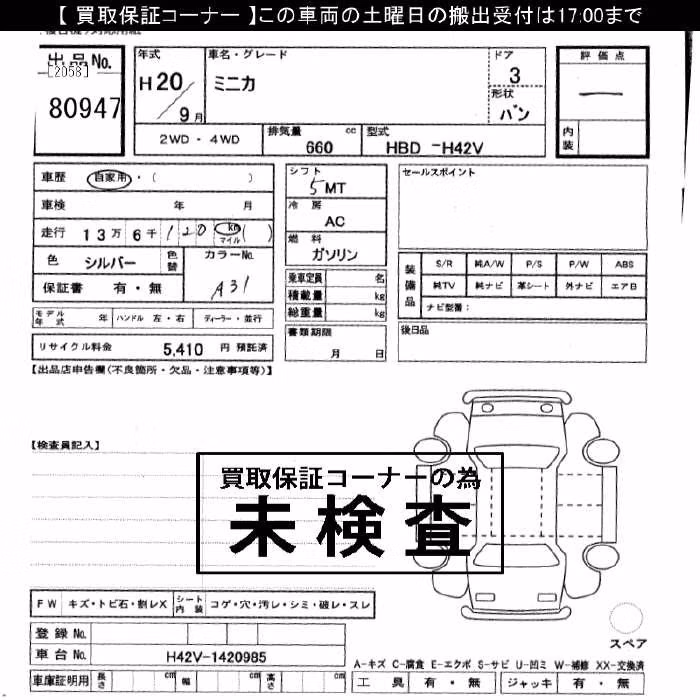 【 買取保証コーナー 】この車両の土曜日の搬出受付は17:00まで
出品No.
[2058]
80947
年式
H20/9月
車名・グレード
ミニカ
ドア
3
形状
バン
評価点
―
内装
2WD・4WD
排気量 660 cc
型式 HBD -H42V
車歴 自家用・( )
車検 年 月
走行 13万 6千 120 km マイル ( )
色 シルバー 色替
カラーNo.
A31
保証書 有・無
モデル年式 年 ハンドル 左・右 ディーラー・並行
リサイクル料金 5,410 円 預託済
シフト
5MT
冷房
AC
燃料
ガソリン
乗車定員 名
積載量 kg
総重量 kg
書類期限
月 日
セールスポイント
装備品
S/R 純A/W P/S P/W ABS
純TV 純ナビ 革シート 外ナビ エアB
ナビ型番:
後日品
【出品店申告欄(不良箇所・欠品・注意事項等)】
【検査員記入】
買取保証コーナーの為
未検査
FW キズ・トビ石・割レX シート内装 コゲ・穴・汚レ・シミ・破レ・スレ
登録No.
車台No. H42V-1420985
車庫証明用 長さ cm 幅 cm 高さ cm
スペア
A-キズ C-腐食 E-エクボ S-サビ U-凹ミ W-補修 XX-交換済
工具 有・無 ジャッキ 有・無